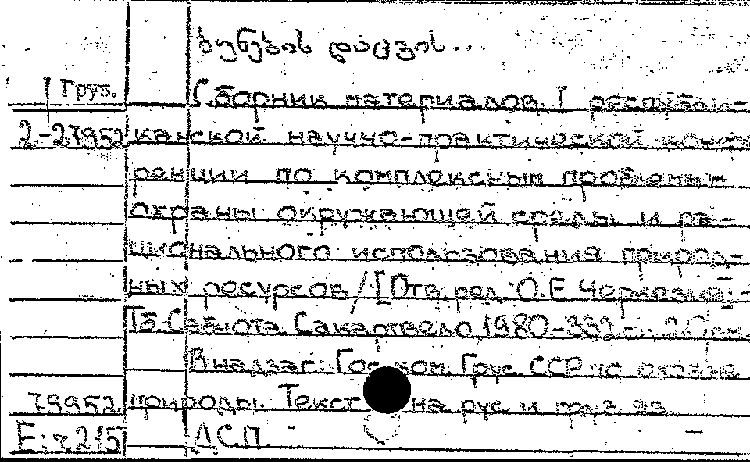 ბუნების დაცვის...
Груз. Сборник материалов I республи-
2-27952 канской научно-практической конфе
ренции по комплексным проблемам
охраны окружающей среды и ра-
ционального использования природ-
ных ресурсов / [Отв. ред. О.Е.
Тб. Сабчота Сакартвело 1980-332
В надзаг: Гос. ком. Груз ССР по охране
79952 природы. Текст на рус и груз яз
ДСП.